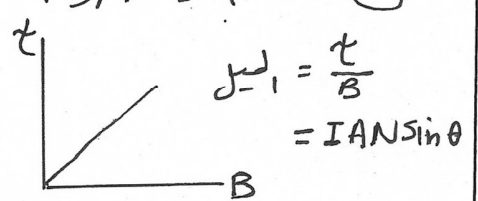 τ
الميل = τ/B
= IANsinθ
B